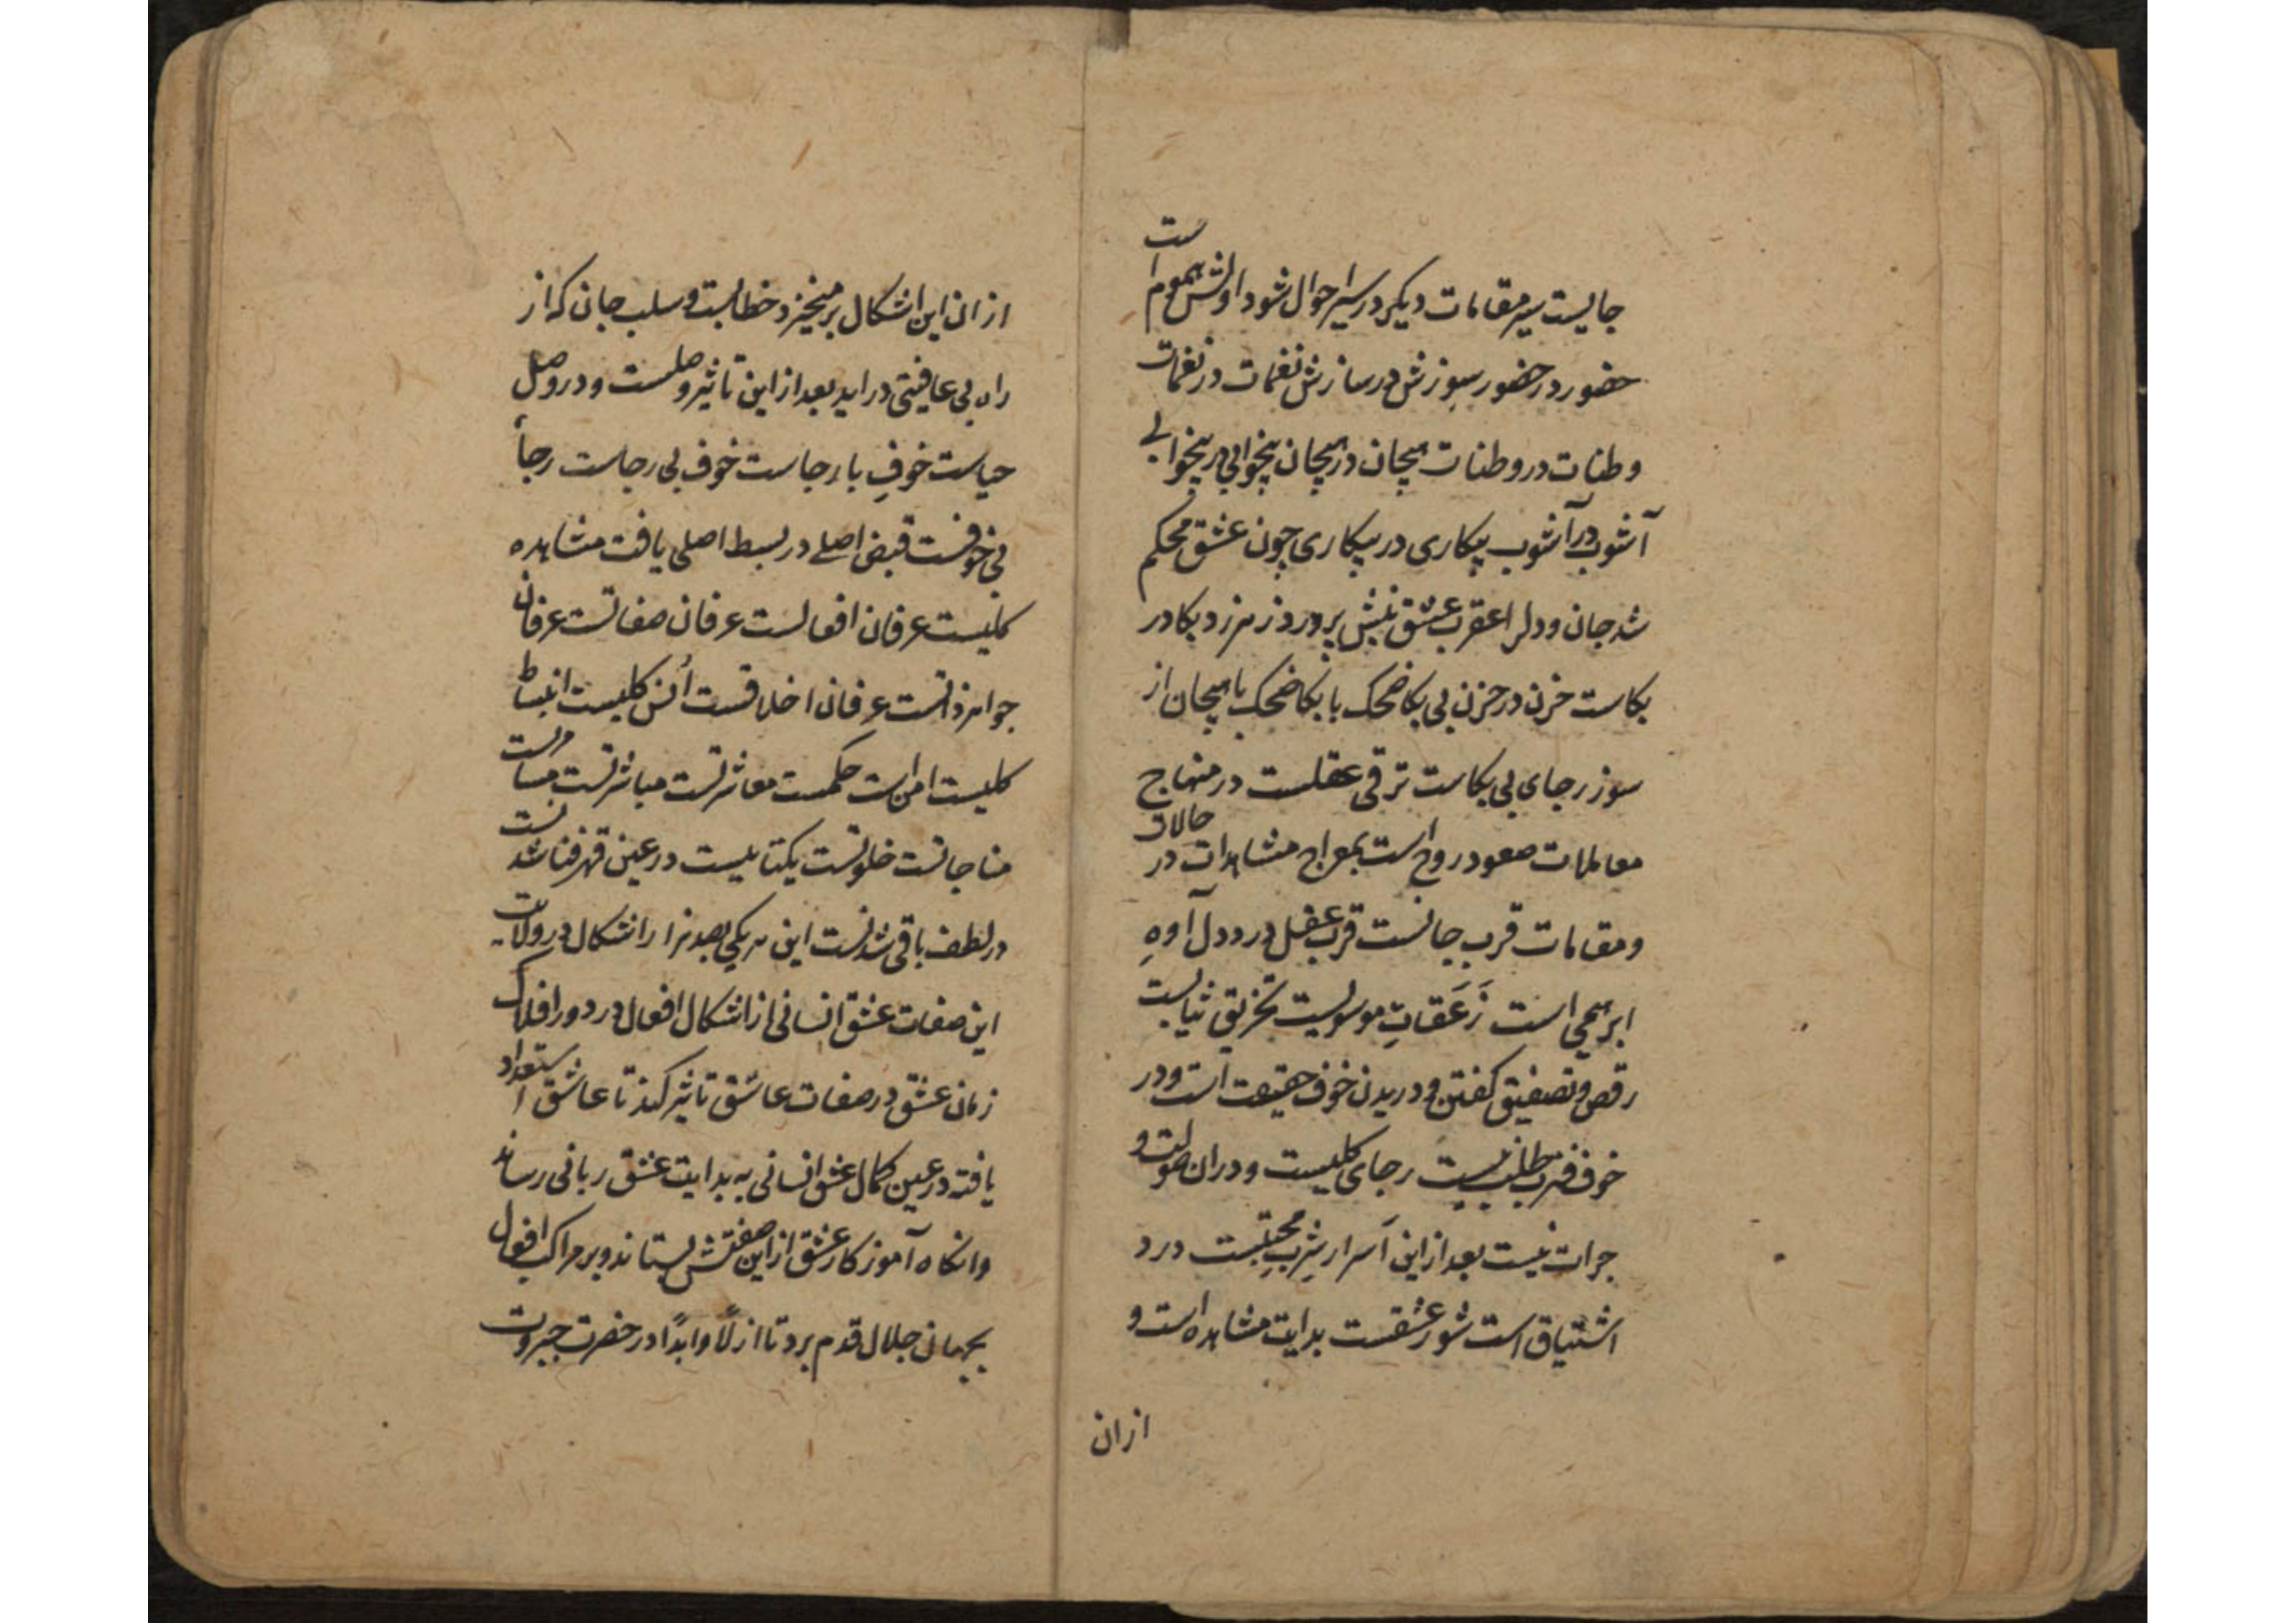 جالیست سیر مقامات دیکر در سیر احوال شود اولش هموم است
حضور در حضور سوزش در سازش نغمات در نغمات
وطنات در وطنات هیجان در هیجان بیخوابی در بیخوابی
آشوب در آشوب بیکاری در بیکاری چون عشق محکم
شد جان و دل را عقرب عشق نیش برورد زهر زد بکا در
بکاست حزن در حزن بی بکا ضحک با بکا ضحک با هیجان از
سوز رجای بی بکاست ترقی عقلست در منهاج
معاملات صعود روح است بمعراج مشاهدات در حالات
و مقامات قرب جانست قرب عقل درد دل آوه
ابرهیمی است زَعَقاتِ موسویست تخریق ثیابست
رقص و تصفیق کفتن و دریدن خوف حقیقت است و در
خوف قرب طلب نیست رجای کلیست و در ان صولت و
جرات نیست بعد از این اسرار شرب محبتست درد
اشتیاق است شور عشقست بدایت مشاهده است و
ازان
ازان این اشکال برمیخیزد خطابست و سلب جان که از
راه بی عافیتی دراید بعد از این تاثیر وصلست و در وصل
حیاست خوفِ با رجاست خوف بی رجاست رجأ
بی خوفست قبض اصلی در بسط اصلی یافت مشاهده
کلیست عرفان افعالست عرفان صفاتست عرفان
جواهر ذاتست عرفان اخلاقست اُنس کلیست انبساط
کلیست امن است حکمست معاشرتست مباشرتست مسامرتست
مناجاتست خلوتست یکتاییست در عین قهر فنا شدنست
در لطف باقی شدنست این هر یکی بصد هزار اشکال در ولایت
این صفات عشق انسانی از اشکال افعال در دور افلاک
زمان عشق در صفات عاشق تاثیر کند تا عاشق استعداد
یافته در عین کمال عشق انسانی به بدایت عشق ربانی رساند
وانکاه آموزکار عشق از این صفتش بستاند و بر مراکب افول
بجهان جلال قدم برد تا ازلاً و ابداً در حضرت جبروت